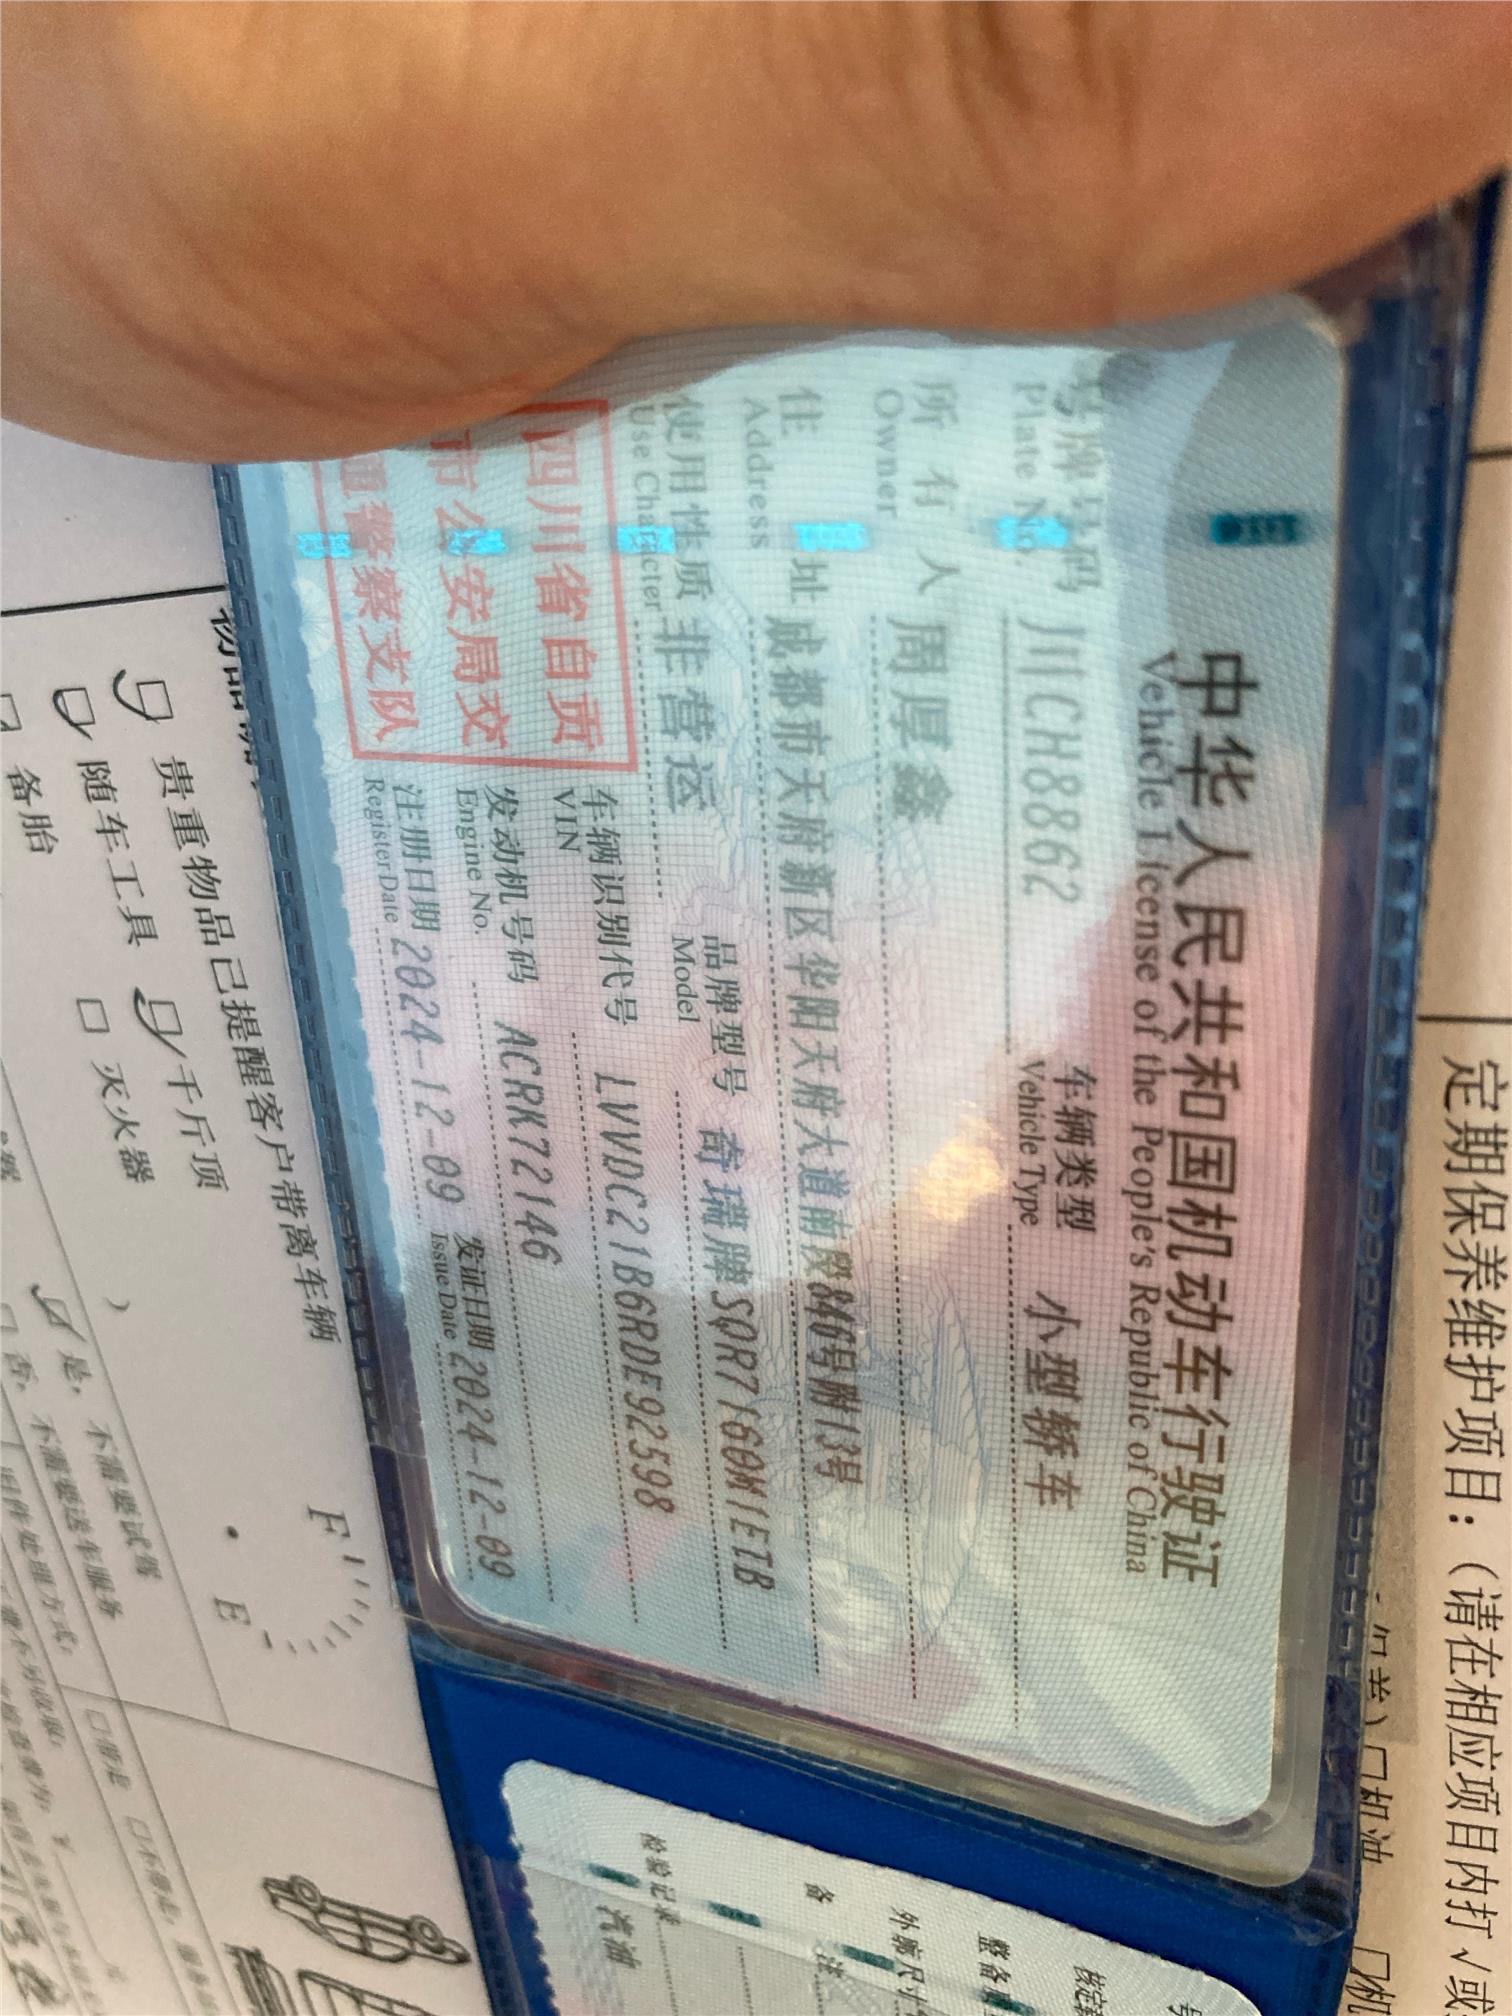 中华人民共和国机动车行驶证
Vehicle License of the People's Republic of China
号牌号码 川CH8862 车辆类型 小型轿车
Plate No. Vehicle Type
所有人 周厚鑫
Owner
住址 成都市天府新区华阳天府大道南段846号附13号
Address
使用性质 非营运 品牌型号 奇瑞牌SQR7160M1ETB
Use Character Model
四川省自贡
市公安局交
通警察支队
车辆识别代号 LVVDC21B6RDE92598
VIN
发动机号码 ACRK72146
Engine No.
注册日期 2024-12-09 发证日期 2024-12-09
Register Date Issue Date
定期保养维护项目：（请在相应项目内打√或
□机油
贵重物品已提醒客户带离车辆
□ 随车工具 □ 千斤顶
□ 备胎 □ 灭火器
）
是，不需要试驾
F
E
整备
外廓尺寸
备 注
检验记录
汽油